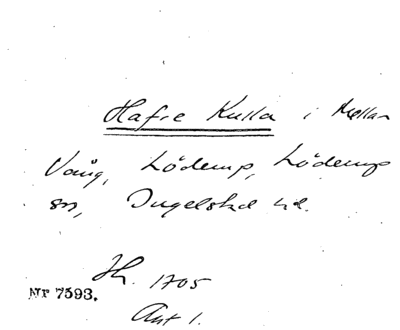 Hafre Kulla i Mellan
Vång, Löderup, Löderups
sn, Ingelstad hd.
Jh. 1705
Nr 7593.
Akt 1.